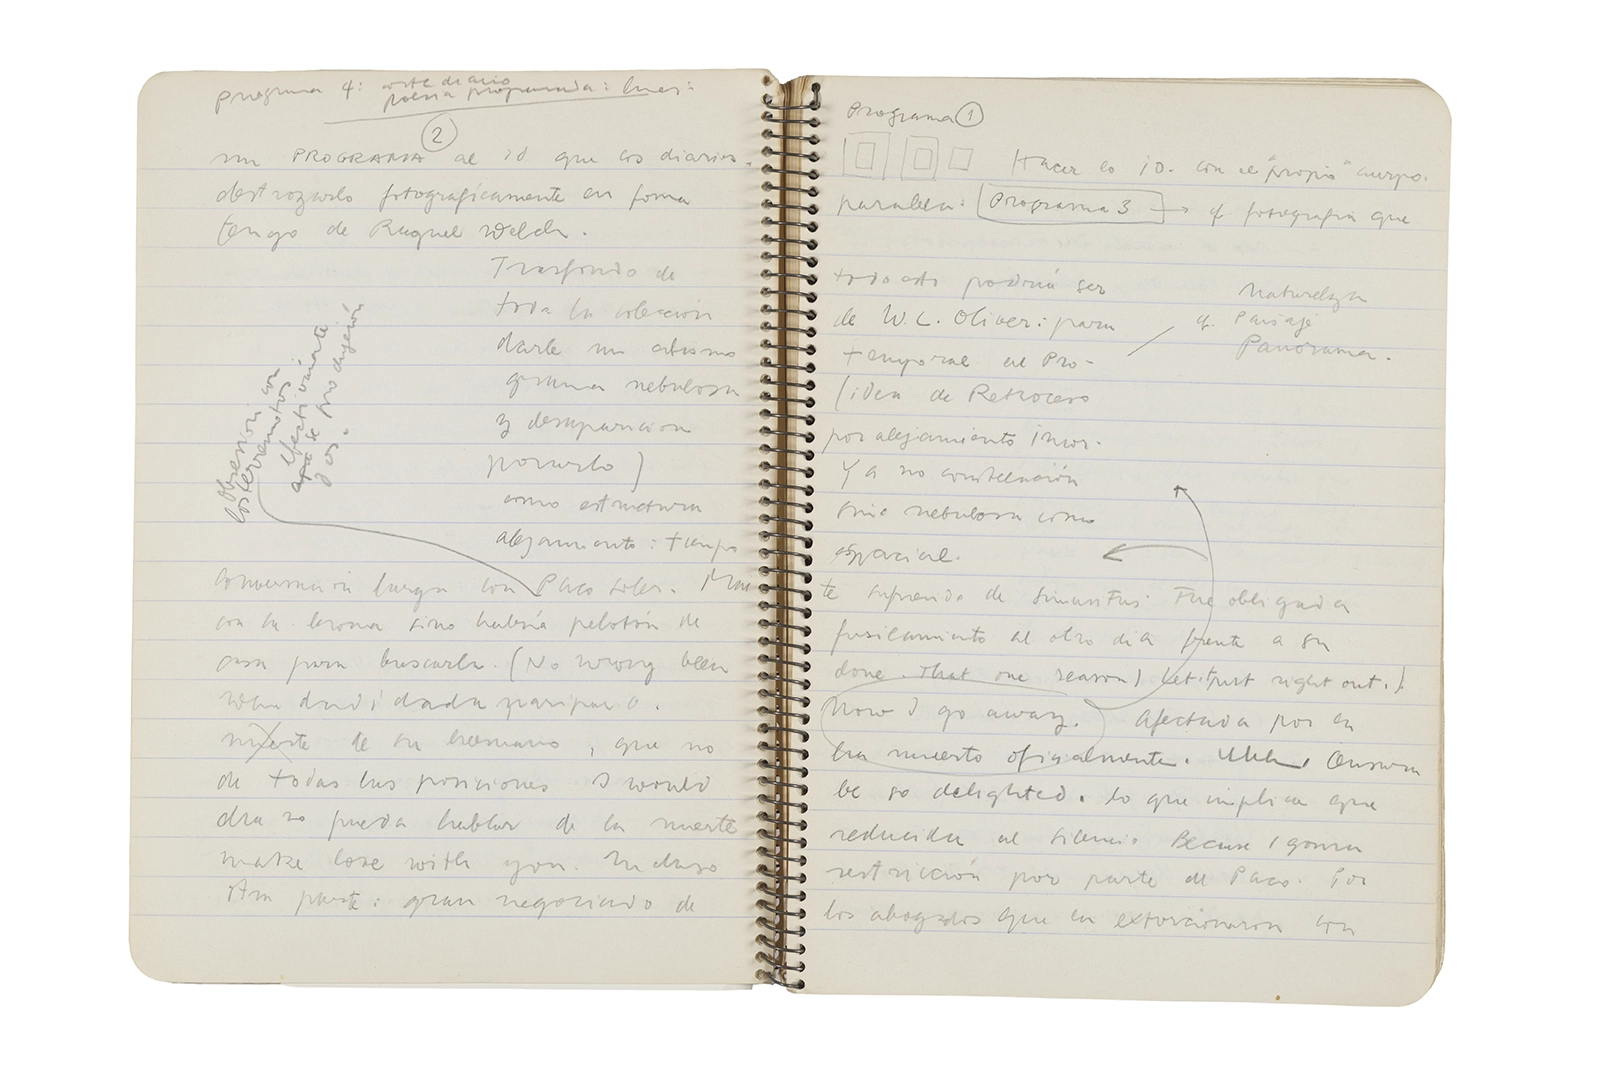 programa 4: arte diario
poesía programada:
2
un PROGRAMA al id que los diarios.
destrozarlo fotográficamente en forma
tengo de Raquel Welch.
Trasfondo de
toda la colección
darle un abismo
grama nebulosa
y desaparición
ponerlo)
como estructura
alejamiento: tiempo
Obsesión con
los terremotos
efectivamente
que se produjeron
dos.
conversación larga con Paco Soler.
con la broma sino habría pelotón de
casa para buscarla. (No wrong been
when dad i dada paripa o.
muerte de su hermano, que no
de todas las posiciones I would
dra no pueda hablar de la muerte
make love with you. Incluso
Ara parte: gran negociado de
Programa 1
Hacer lo iD. con el "propio" cuerpo.
paralela: Programa 3 → cf. fotografía que
todo esto podría ser
de W.C. Oliver: para
temporal al Pro-
(idea de Retroceso
por alejamiento
Ya no constelación
sino nebulosa como
espacial.
Naturaleza
cf. Paisaje
Panorama.
te suprenda de Fue obligada
fusilamiento al otro dia frente a su
done. That one reason) Let it put right out.)
Now I go away. Afectada por la
ha muerto oficialmente.
be so delighted. lo que implica que
reducida al silencio Because I gonna
restricción por parte de Paco. Por
los abogados que la extorcionaron con